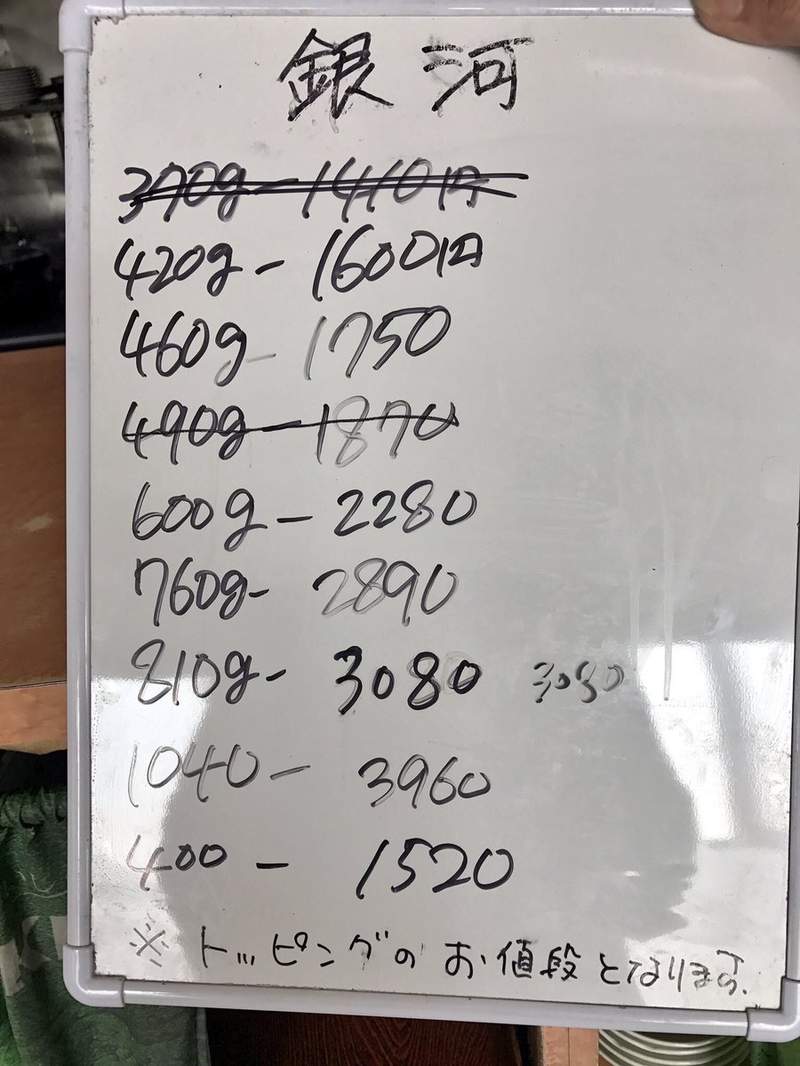 銀河
370g-1410円
420g-1600円
460g-1750
490g-1870
600g-2280
760g-2890
810g-3080 3080
1040-3960
400-1520
※トッピングのお値段となります。